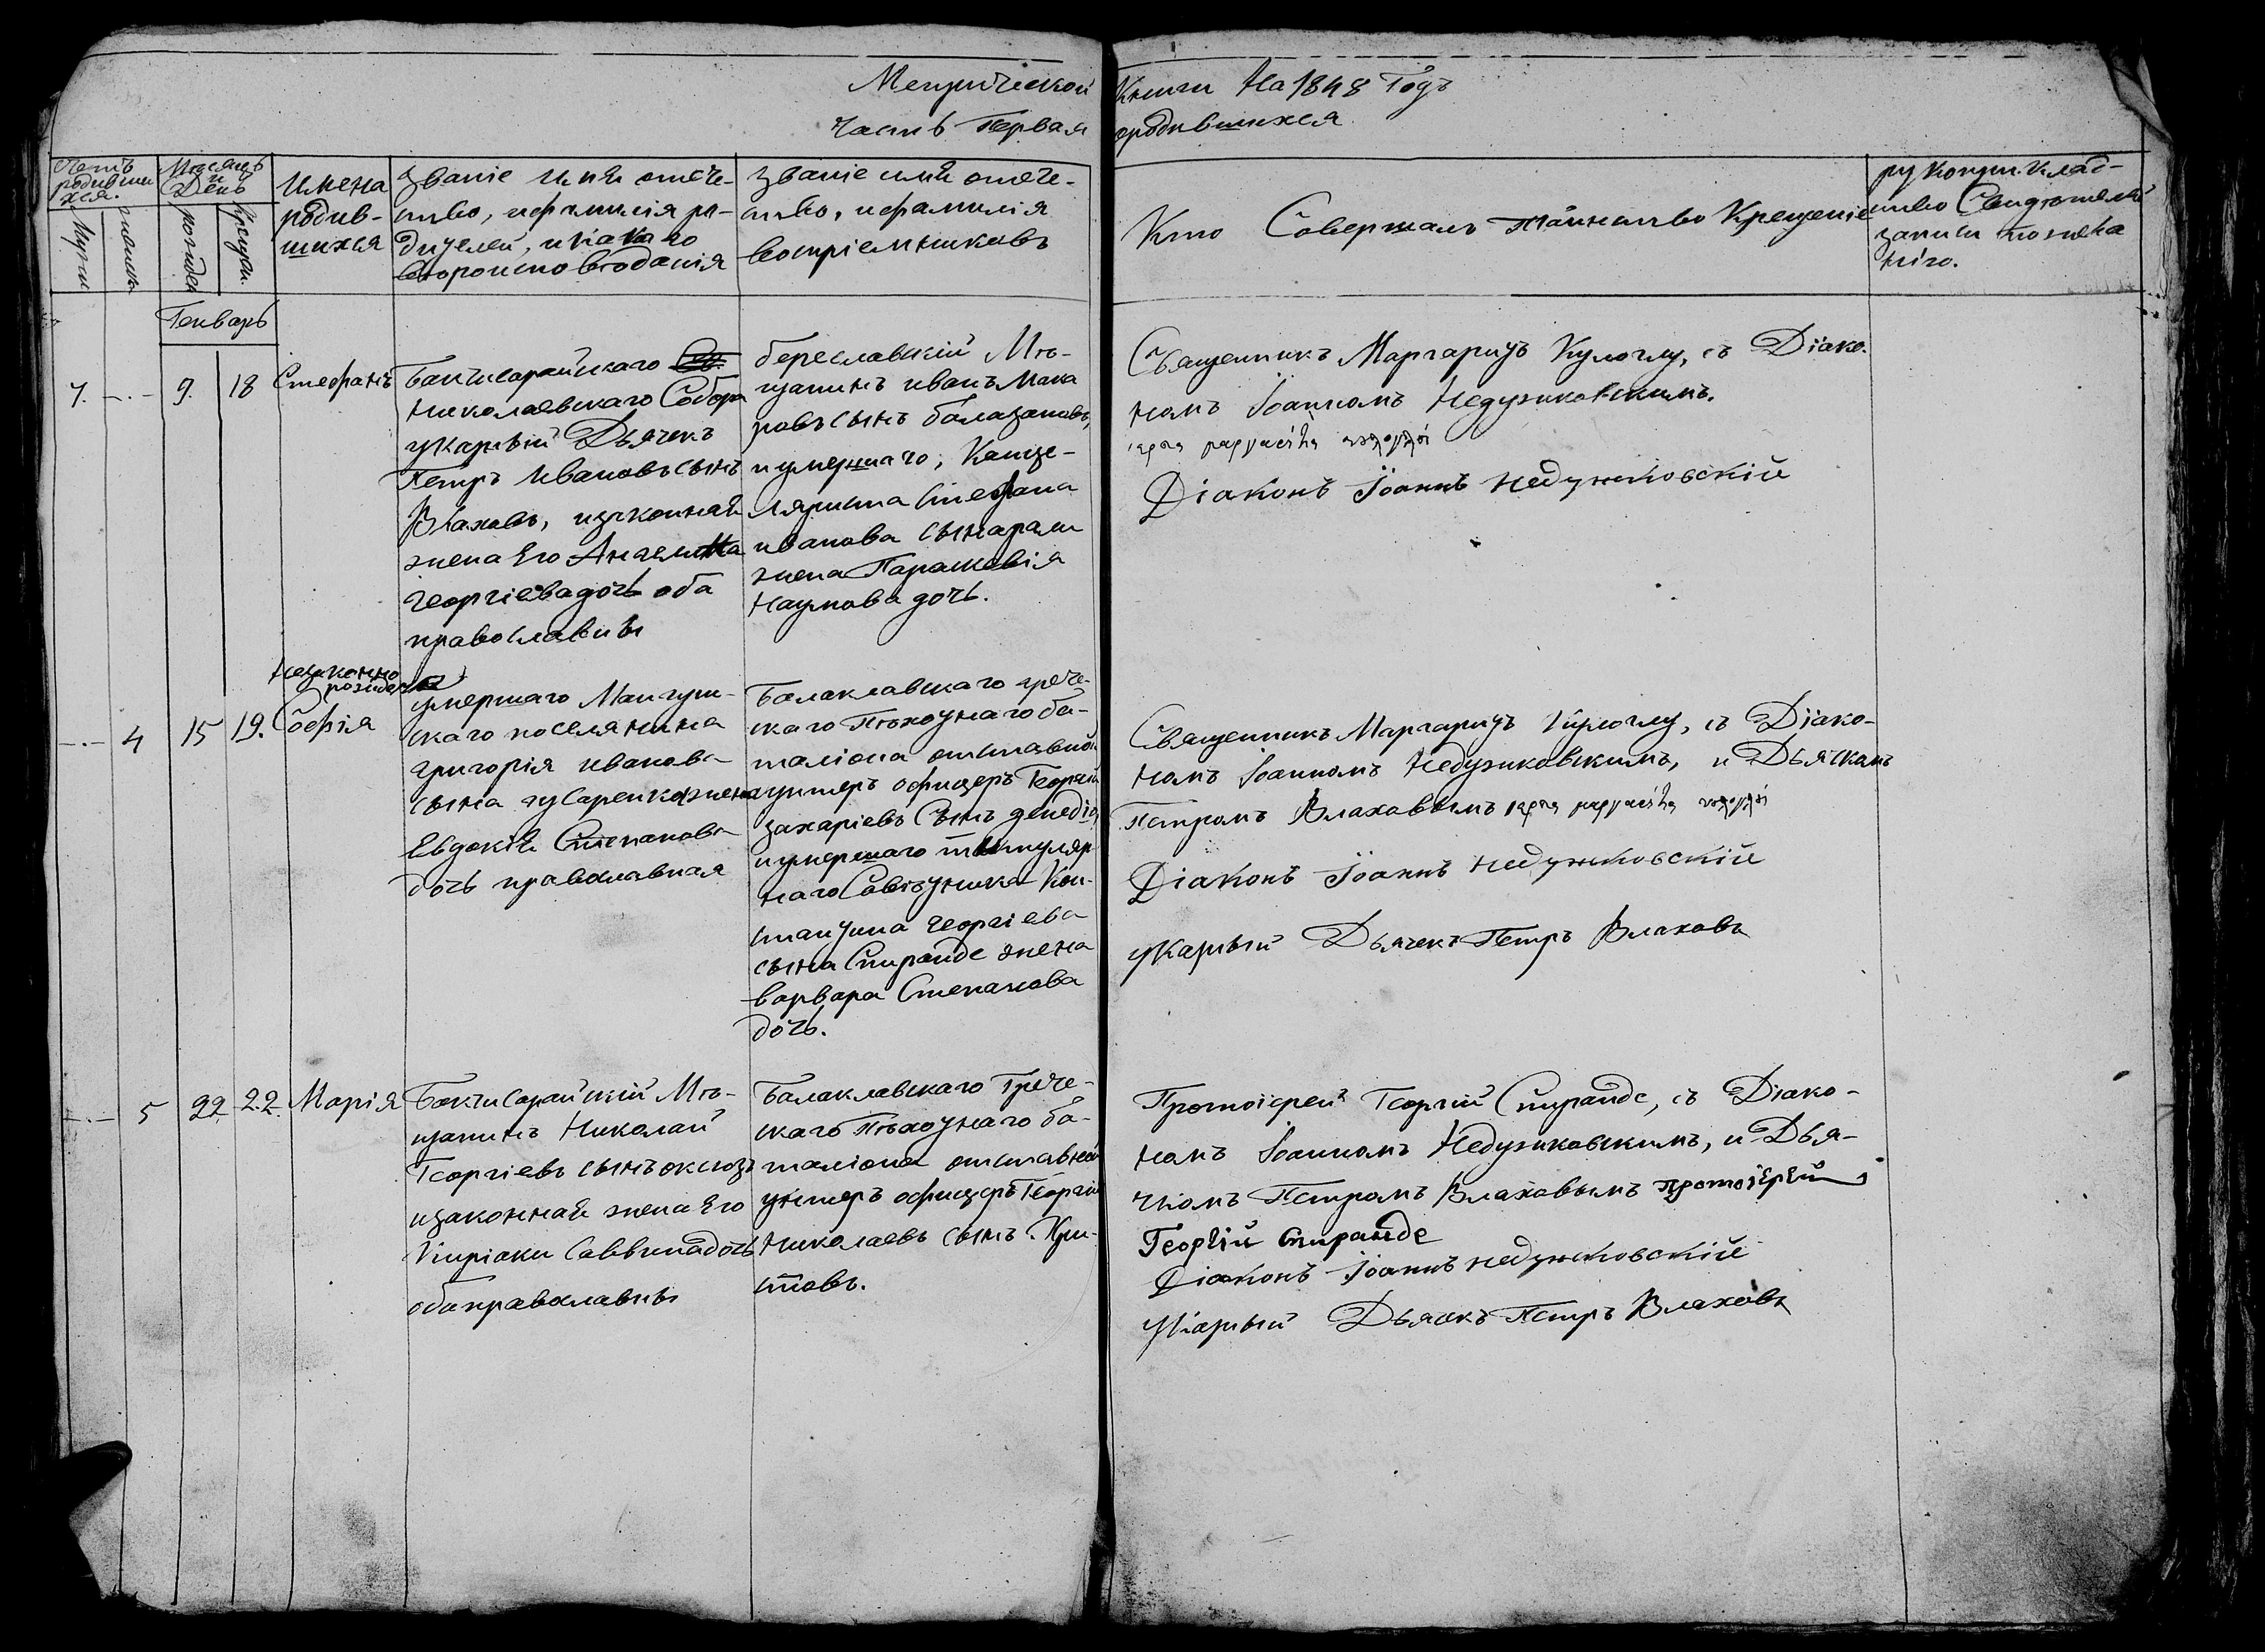 Метрической Книги На 1848 Годъ
Часть Первая ородившихся
Счетъ родившихся.
Мѣсяцъ и День
Имена родив-
шихся
Званіе имя отече-
ство, ифамилія ро-
дителей, икакаго
вѣроисповѣданія
Званіе имя отече-
ство, ифамилія
воспріемниковъ
Кто Совершалъ таинство Крещенія
рукоприклад-
ство Свидѣтелей
записи пожела
нію.
Мужеска
женска
рожден
Крещен.
Генварь
7.
9.
18
Стефанъ
Бакчисарайскаго
Николаевскаго Собора
указный Дьячекъ
Петръ Ивановъ сынъ
Влаховъ, изаконная
жена Его Ангелина
Георгіева дочь оба
православны
береславскій Мѣ-
щанинъ иванъ Мака
ровъ сынъ балазановъ,
иумершаго, Канце-
ляриста Стефана
иванова сына
жена Параскевія
Наумова дочь.
Священникъ Маргаритъ Кулоглу, съ Діако-
номъ Іоанномъ Недузиковскимъ.
Діаконъ Іоаннъ Недужиковскій
незаконно
рожден
4
15
19.
Софія
умершаго Мангуш-
скаго поселянина
григорія иванова
сына гусаренка жена
Евдокія Степанова
дочь православная
Балаклавскаго грече-
скаго Пѣхотнаго ба-
таліона отставной
унтеръ офицеръ Георгій
захаріевъ Сынъ
иумершаго титуляр
наго Совѣтника Кон-
стантина Георгіева
сына Спиранде жена
варвара Степанова
дочь.
Священникъ Маргаритъ Кулоглу, съ Діако-
номъ Іоанномъ Недузиковскимъ, и Дьячкомъ
Петромъ Влаховымъ
Діаконъ Іоаннъ Недужиковскій
указный Дьячекъ Петръ Влаховъ
5
22
22.
Марія
Бакчисарайскій Мѣ-
щанинъ Николай
Георгіевъ сынъ оксюзъ
изаконная жена Его
Киріаки Саввина дочь
оба православны
Балаклавскаго Грече-
скаго Пѣхотнаго ба-
таліона отставной
унтеръ офицеръ Георгій
Николаевъ сынъ Хри-
стовъ.
Протоіерей Георгій Спиранде, съ Діако-
номъ Іоанномъ Недузиковскимъ, и Дья-
чкомъ Петромъ Влаховымъ протоіерей
Георгій Спиранде
Діаконъ Іоаннъ недужиковскій
Указный Дьячекъ Петръ Влаховъ